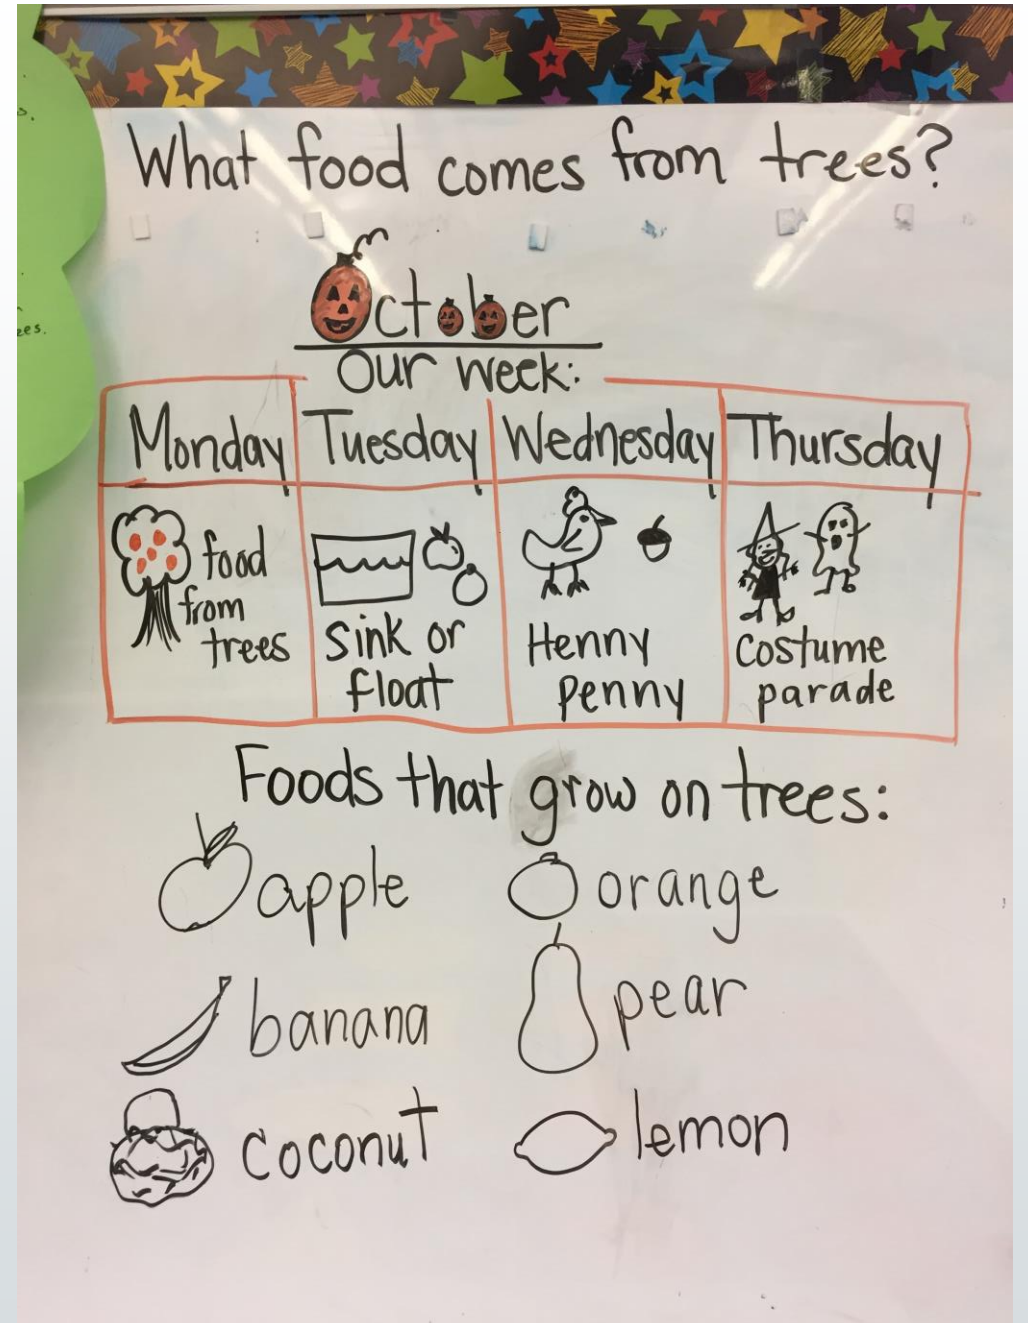 What food comes from trees?
October
Our week:
Monday Tuesday Wednesday Thursday
food
from
trees
Sink or
float
Henny
Penny
Costume
parade
Foods that grow on trees:
apple orange
banana pear
coconut lemon